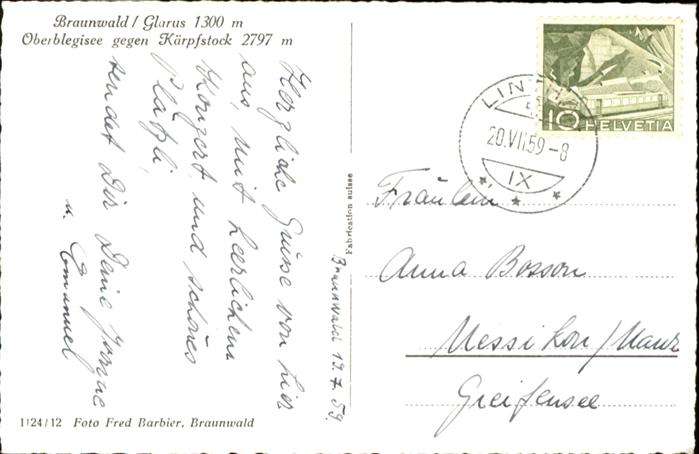 Braunwald / Glarus 1300 m
Oberblegisee gegen Kärpfstock 2797 m
Herzliche Grüsse von hier
aus, mit herrlichem
Konzert und schönes
Plätzli,
sendet Dir Deine
u. Emanuel
Braunwald 19.7.59
Fabrication suisse
HELVETIA
10
LINTHAL
20.VII.59-8
IX
Fräulein
Anna Bosson
Nessikon/
Greifensee
1124/12 Foto Fred Barbier, Braunwald